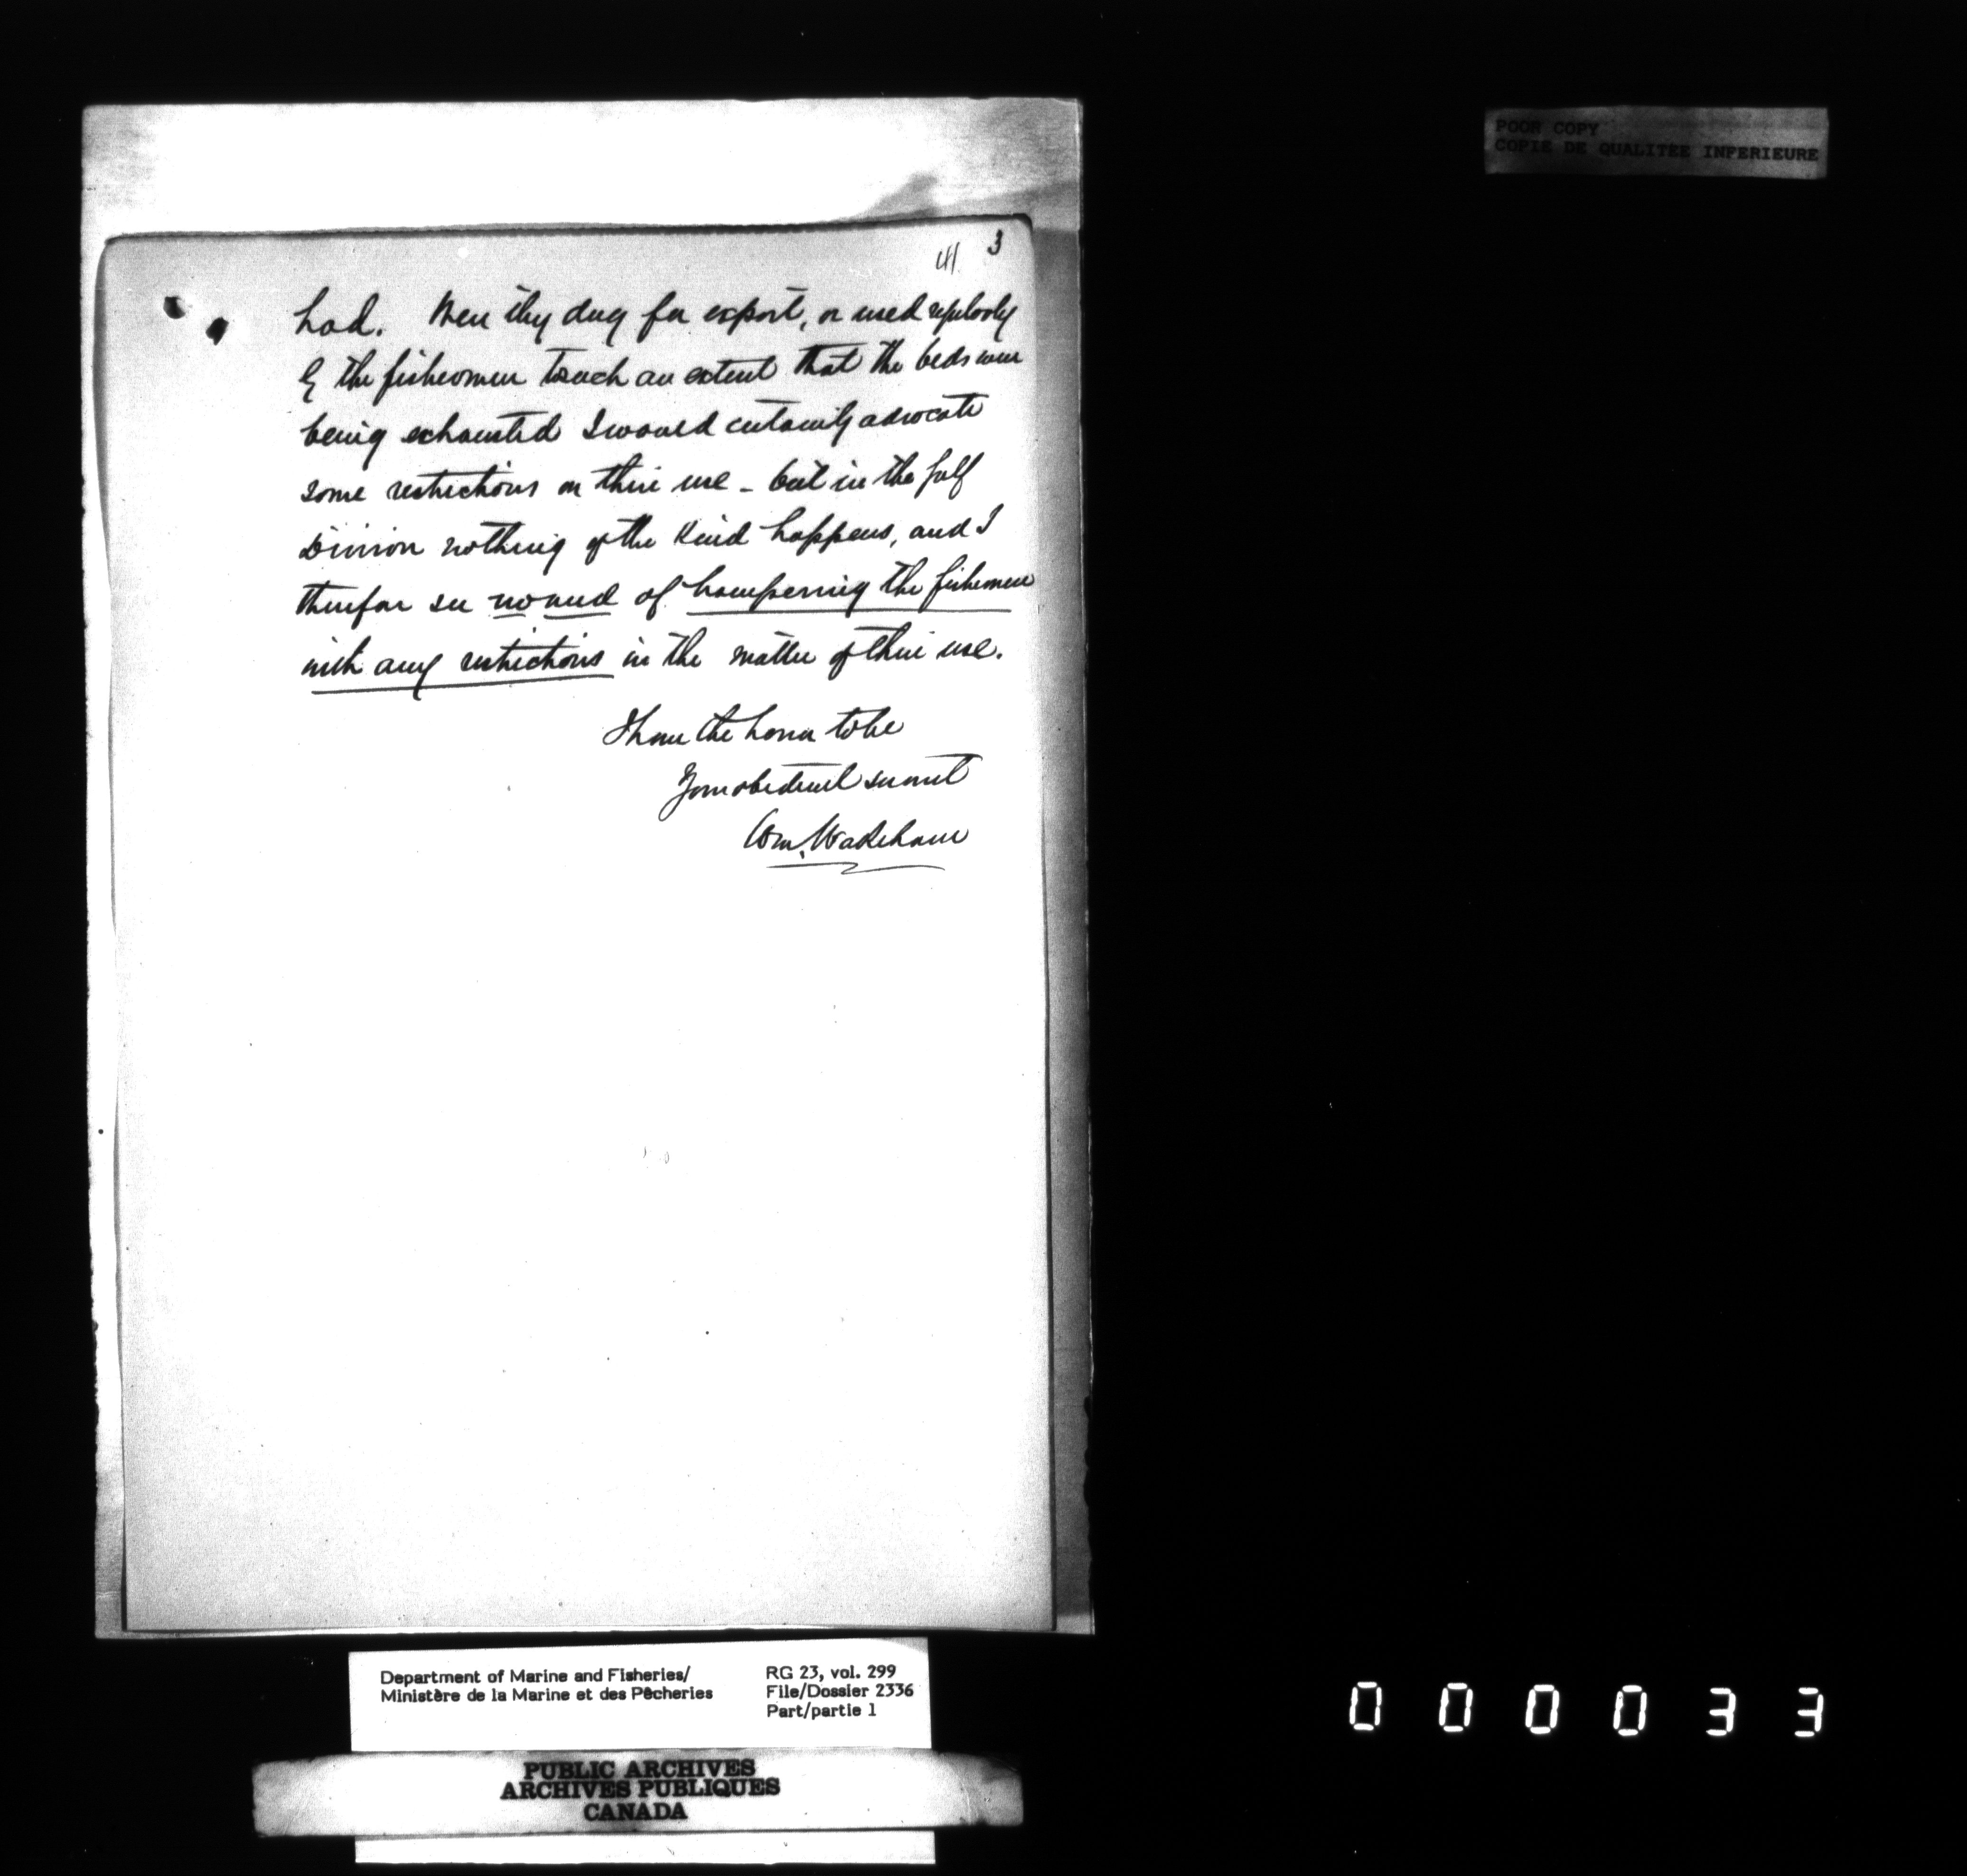 POOR COPY
COPIE DE QUALITEE INFERIEURE
41 3
had. Were they dug for export, or used regularly
by the fishermen to such an extent that the beds were
being exhausted I would certainly advocate
some restrictions on their use - but in the Gulf
Division nothing of the kind happens, and I
therefore see no need of hampering the fishermen
with any restrictions in the matter of their use.
I have the honor to be
Your obedient servant
Wm. Wakeham
Department of Marine and Fisheries/ RG 23, vol. 299
Ministère de la Marine et des Pêcheries File/Dossier 2336
Part/partie 1
PUBLIC ARCHIVES
ARCHIVES PUBLIQUES
CANADA
000033